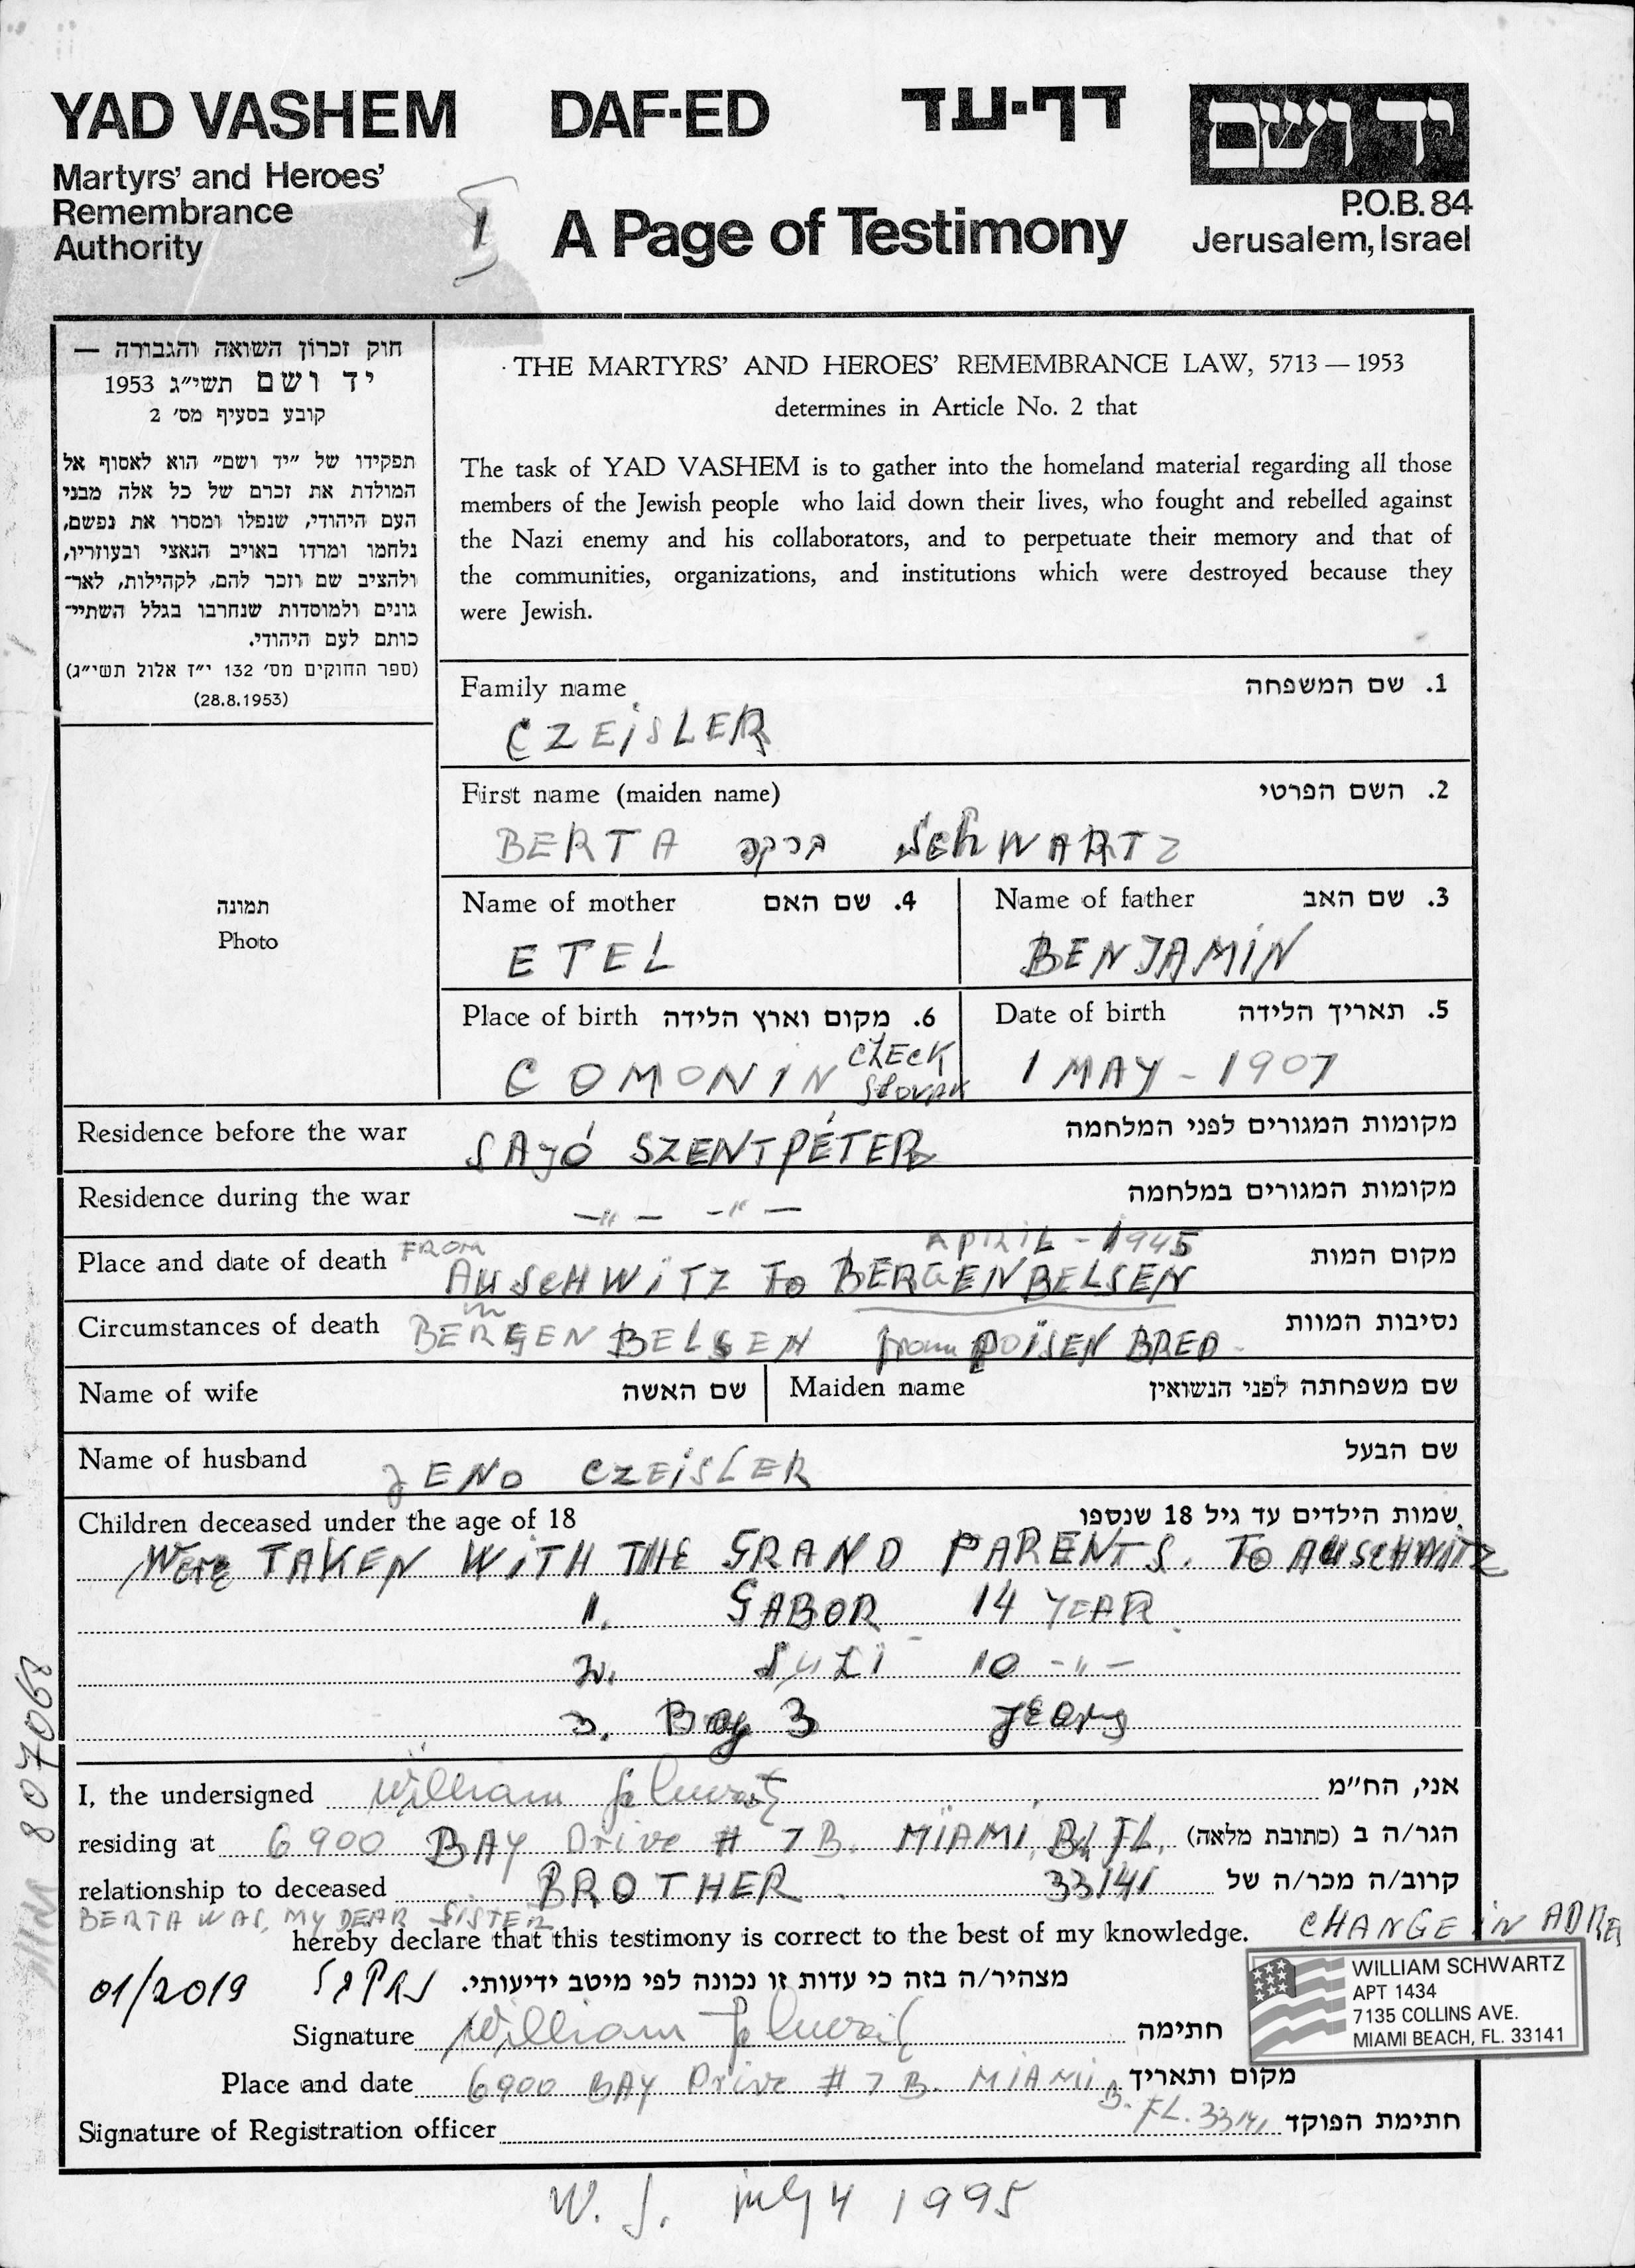 YAD VASHEM DAF-ED דף-עד יד ושם
Martyrs' and Heroes'
Remembrance
Authority
A Page of Testimony
P.O.B. 84
Jerusalem, Israel
חוק זכרון השואה והגבורה —
יד ושם תשי״ג 1953
קובע בסעיף מס׳ 2
תפקידו של ״יד ושם״ הוא לאסוף אל
המולדת את זכרם של כל אלה מבני
העם היהודי, שנפלו ומסרו את נפשם,
נלחמו ומרדו באויב הנאצי ובעוזריו,
ולהציב שם וזכר להם, לקהילות, לאר־
גונים ולמוסדות שנחרבו בגלל השתיי־
כותם לעם היהודי.
(ספר החוקים מס׳ 132 י״ז אלול תשי״ג)
(28.8.1953)
THE MARTYRS' AND HEROES' REMEMBRANCE LAW, 5713 — 1953
determines in Article No. 2 that
The task of YAD VASHEM is to gather into the homeland material regarding all those
members of the Jewish people who laid down their lives, who fought and rebelled against
the Nazi enemy and his collaborators, and to perpetuate their memory and that of
the communities, organizations, and institutions which were destroyed because they
were Jewish.
תמונה
Photo
Family name 1. שם המשפחה
CZEiSLER
First name (maiden name) 2. השם הפרטי
BERTA SchWARTZ
Name of mother 4. שם האם Name of father 3. שם האב
ETEL BENJAMIN
Place of birth 6. מקום וארץ הלידה Date of birth 5. תאריך הלידה
COMONIN CZECK SLOVAK 1 MAY - 1907
Residence before the war SAJÓ SZENTPÉTER מקומות המגורים לפני המלחמה
Residence during the war —〃— —〃— מקומות המגורים במלחמה
Place and date of death FROM APRIL - 1945 מקום המות
AUSCHWITZ To BERGENBELSEN
Circumstances of death in BERGEN BELSEN from POiSEN BRED נסיבות המוות
Name of wife שם האשה Maiden name שם משפחתה לפני הנשואין
Name of husband JENO CZEiSLER שם הבעל
Children deceased under the age of 18 שמות הילדים עד גיל 18 שנספו
Were TAKEN WITH THE GRAND PARENTS. To AUSCHWITZ
1. GABOR 14 YEAR
2. SUZI 10 -〃-
3. Boy 3
I, the undersigned William Schwartz אני, הח״מ
residing at 6900 BAY Drive # 7B. MIAMI, B. FL. הגר/ה ב (כתובת מלאה)
relationship to deceased BROTHER 33141 קרוב/ה מכר/ה של
BERTA WAS, MY DEAR SISTER
hereby declare that this testimony is correct to the best of my knowledge.
CHANGE iN ADRE
01/2019 מצהיר/ה בזה כי עדות זו נכונה לפי מיטב ידיעותי.
WILLIAM SCHWARTZ
APT 1434
7135 COLLINS AVE.
MIAMI BEACH, FL. 33141
Signature William Schwartz חתימה
Place and date 6900 BAY Drive # 7B. MIAMI B. FL. 33141 מקום ותאריך
Signature of Registration officer חתימת הפוקד
W. S. july 4 1995
807068